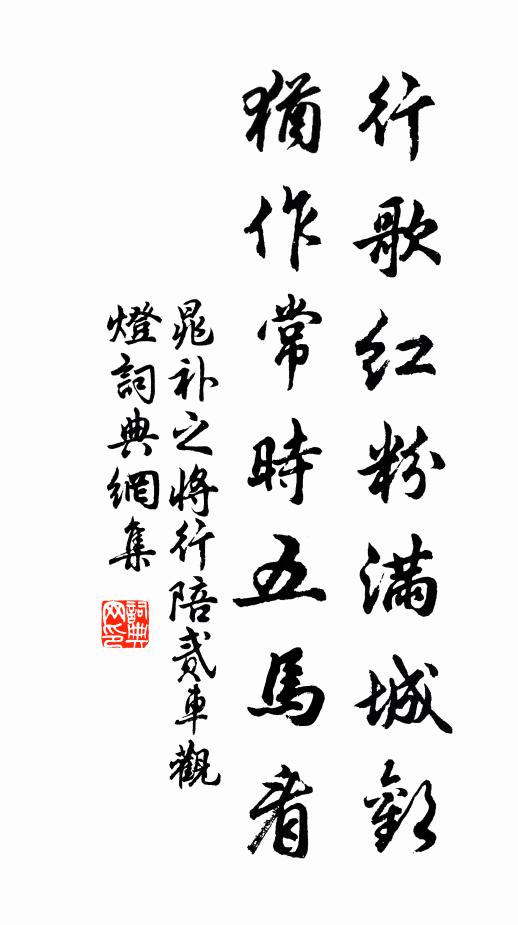 行歌红粉滿城歡
猶作常時五馬看
晁补之將行陪貳車觀
燈詞典網集
詞典网印